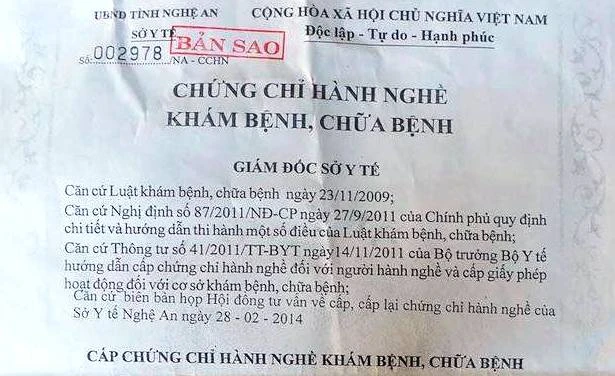 UBND TỈNH NGHỆ AN
CỘNG HÒA XÃ HỘI CHỦ NGHĨA VIỆT NAM
SỞ Y TẾ
Độc lập - Tự do - Hạnh phúc
BẢN SAO
Số: 002978 /NA - CCHN
CHỨNG CHỈ HÀNH NGHỀ
KHÁM BỆNH, CHỮA BỆNH
GIÁM ĐỐC SỞ Y TẾ
Căn cứ Luật khám bệnh, chữa bệnh ngày 23/11/2009;
Căn cứ Nghị định số 87/2011/NĐ-CP ngày 27/9/2011 của Chính phủ quy định
chi tiết và hướng dẫn thi hành một số điều của Luật khám bệnh, chữa bệnh;
Căn cứ Thông tư số 41/2011/TT-BYT ngày14/11/2011 của Bộ trưởng Bộ Y tế
hướng dẫn cấp chứng chỉ hành nghề đối với người hành nghề và cấp giấy phép
hoạt động đối với cơ sở khám bệnh, chữa bệnh;
Căn cứ biên bản họp Hội đồng tư vấn về cấp, cấp lại chứng chỉ hành nghề của
Sở Y tế Nghệ An ngày 28 - 02 - 2014
CẤP CHỨNG CHỈ HÀNH NGHỀ KHÁM BỆNH, CHỮA BỆNH